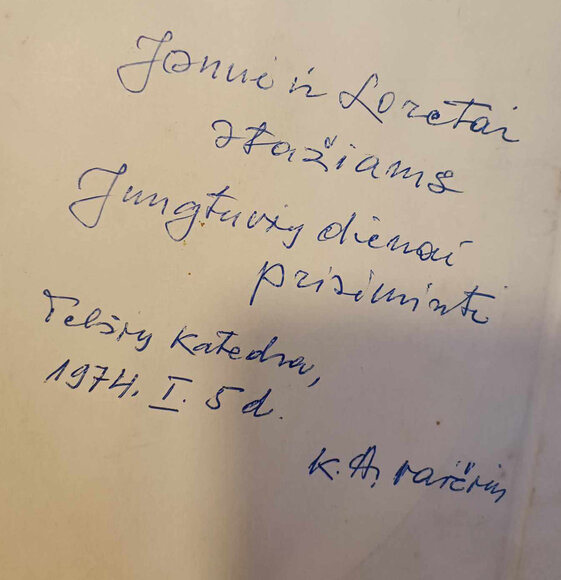 Jonui ir Loretai
Jungtuvių dienai
prisiminti
Telšių Katedra,
1974. I. 5 d.
K. A.